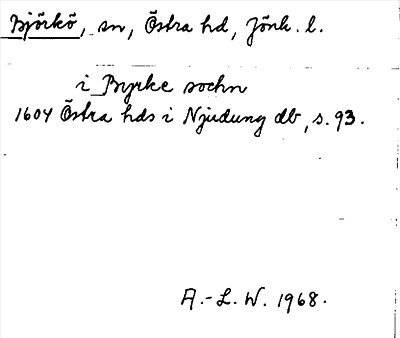 Björkö, sn, Östra hd, Jönk. l.
i Byrke sochn
1604 Östra hds i Njudung db, s. 93.
A.-L. W. 1968.